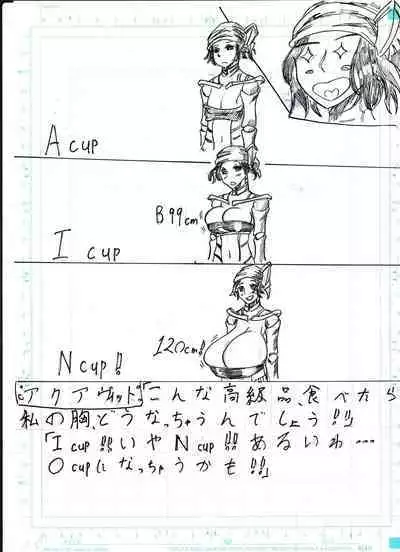 A cup
B 99cm!!
I cup
120cm!!
N cup!!
:アクアヴィット:「こんな高級品、食べたら
私の胸、どうなっちゃうんでしょう!!」
「I cup!!いやN cup!!あるいわ…
O cupになっちゃうかも!!」